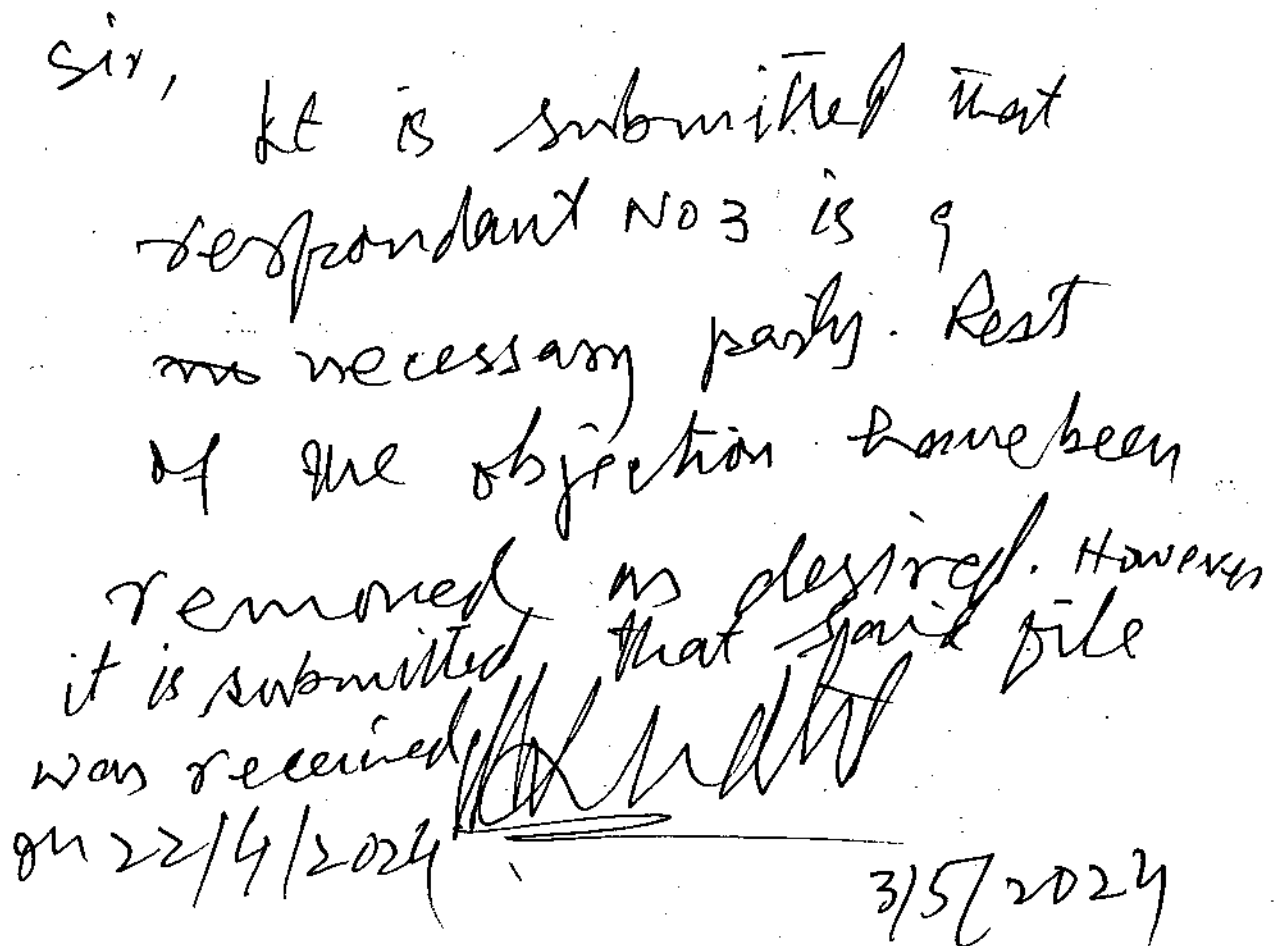 Sir,
It is submitted that
respondant No 3 is a
necessary party. Rest
of the objection have been
removed as desired. However
it is submitted that said file
was received
on 22/4/2024
3/5/2024